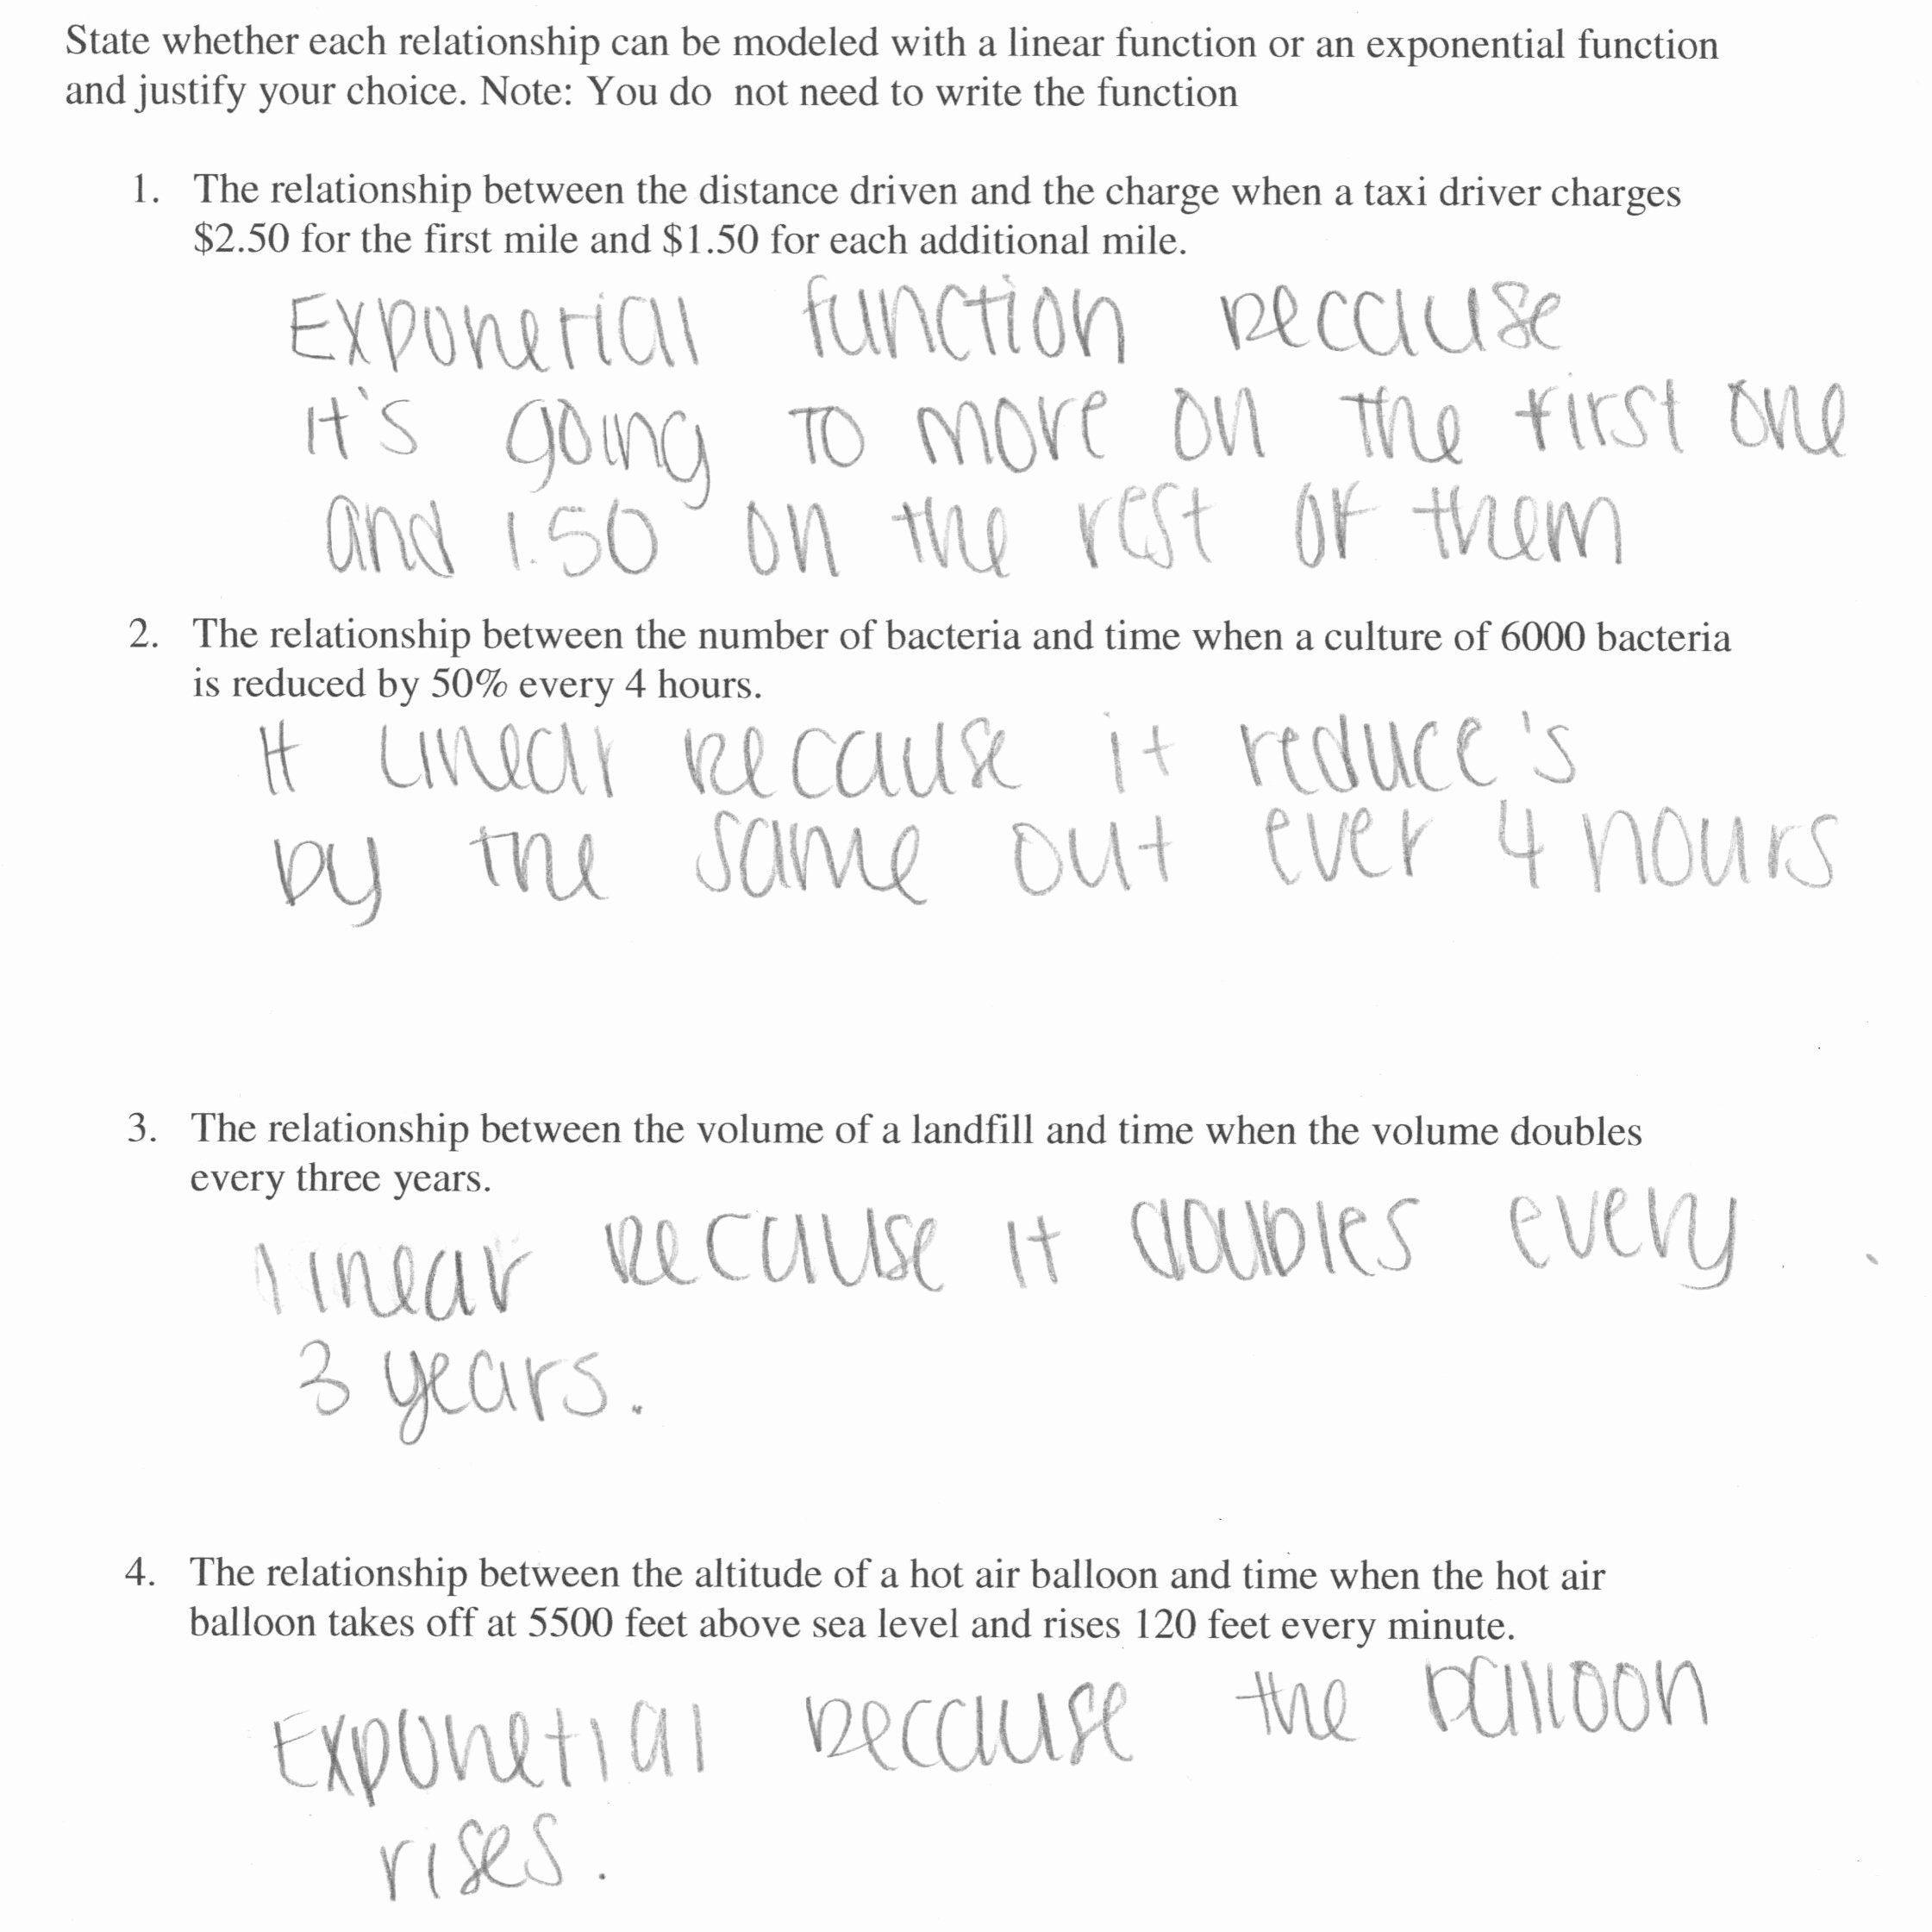 State whether each relationship can be modeled with a linear function or an exponential function
and justify your choice. Note: You do not need to write the function
1. The relationship between the distance driven and the charge when a taxi driver charges
$2.50 for the first mile and $1.50 for each additional mile.
Exponetial function because
it's going to more on the first one
and 1.50 on the rest of them
2. The relationship between the number of bacteria and time when a culture of 6000 bacteria
is reduced by 50% every 4 hours.
It linear because it reduce's
by the same out ever 4 hours
3. The relationship between the volume of a landfill and time when the volume doubles
every three years.
linear because it doubles every
3 years.
4. The relationship between the altitude of a hot air balloon and time when the hot air
balloon takes off at 5500 feet above sea level and rises 120 feet every minute.
Exponetial because the balloon
rises.